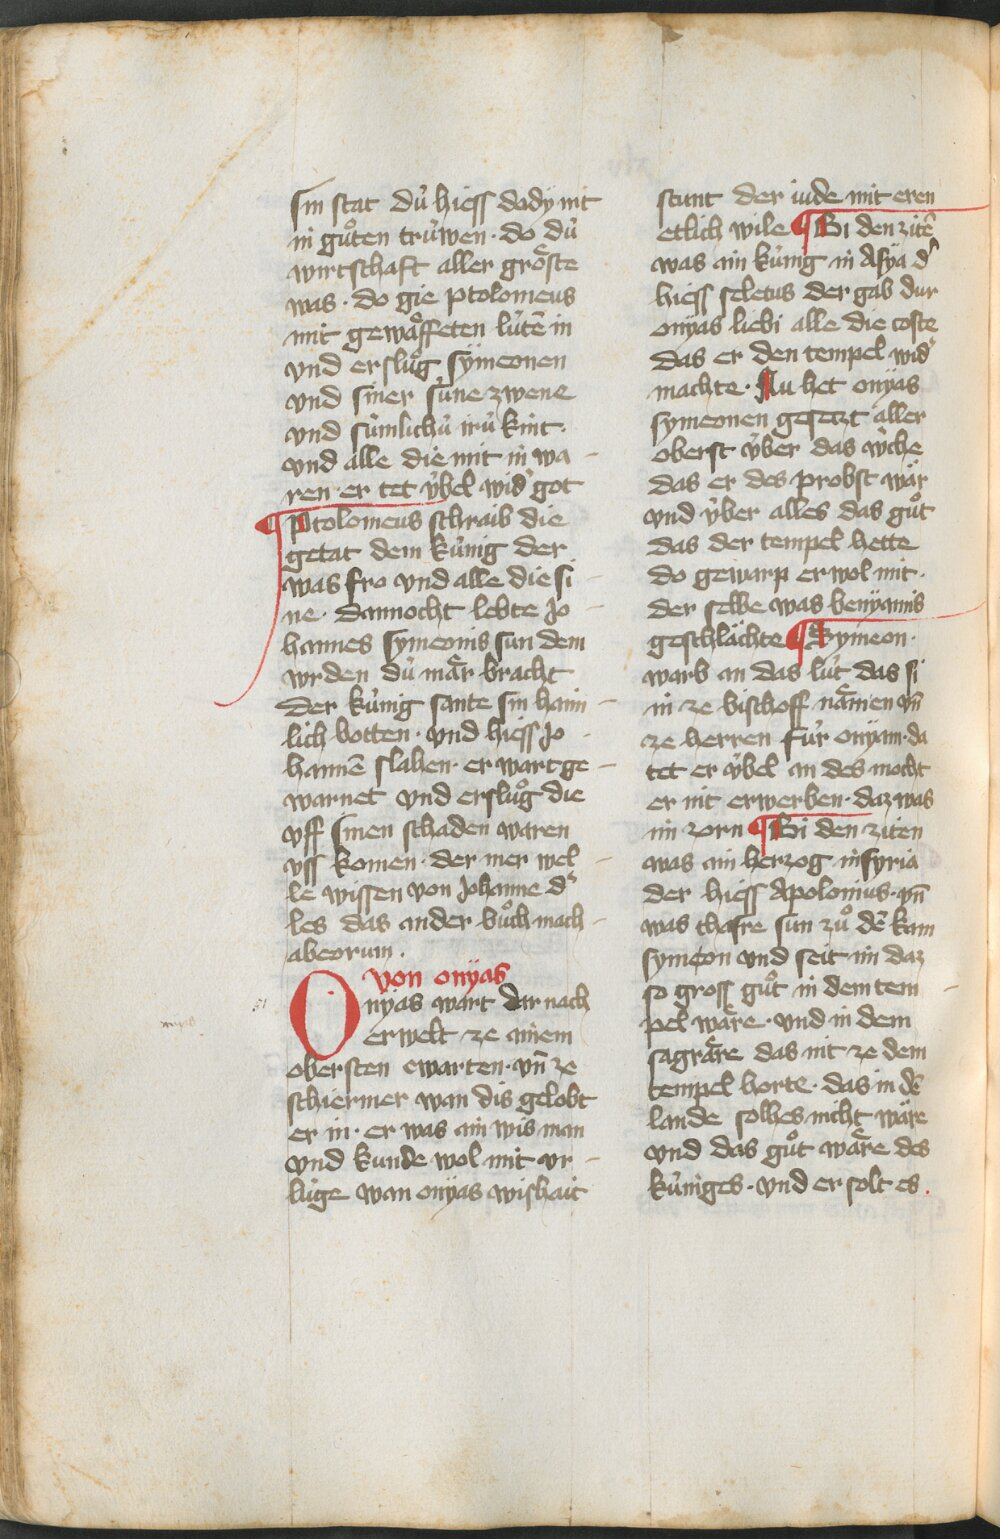 sin stat dů hiess dody nit
in gůten trůwen · do dů
wirtschaft aller gröste
was · do gie ptolomeus
mit gewäffeten lůtē in
vnd erslůg sÿmeonen
vnd siner sůne zwene
vnd sůmlichů irů kint ·
vnd alle die mit in wa -
ren · er tet v̊bel wid' got
¶ Ptolomeus schraib die
getat dem kůnig der
was fro vnd alle die si -
ne · dannocht lebte Jo -
hannes symeonis sun dem
wrden dů mär bracht
Der kůnig sante sin haim -
lich botten · vnd hiess Jo -
hannē slahen · er wart ge -
warnet vnd erslůg die
vff sinen schaden waren
vss komen · der mer wel -
le wissen von Johanne d'
les das ander bůch mach -
abeorum .
von onÿas
Onÿas wart dar nach
erwelt ze ainem
obersten ewarten · vn̄ ze
schiermer wan dis gelobt
er in · er was ain wis man
vnd kunde wol mit vr -
lůge wan onÿas wishait
stunt der iude mit eren
etlich wile ¶ Bi den zitē
was ain kůnig in Asÿa d'
hiess seletus der gab dur
onÿas liebi alle die coste
das er den tempel wid'
machte · Nu het onÿas
symeonen gesetzt aller
oberst v̊ber das v̊che
das er des probst wär
vnd v̊ber alles das gůt
das der tempel hette
do gewarp er wol mit ·
der selbe was benÿamis
geschlächte ¶ Symeon ·
warb an das lůt das si
in ze bischoff nämen vn̄
ze herren fůr onÿam · da
tet er v̊bel an des mocht
er nit erwerben · daz was
im zorn ¶ Bi den ziten
was ain herzog in syria
der hiess Apolonius · vn̄
was thasre sun zů dē kam
symeon vnd seit im daz
so gross gůt in dem tem -
pel wäre · vnd in dem
sagräre das nit ze dem
tempel horte · das in dē
lande solhes nicht wäre
vnd das gůt wäre des
kůniges · vnd er solt es .